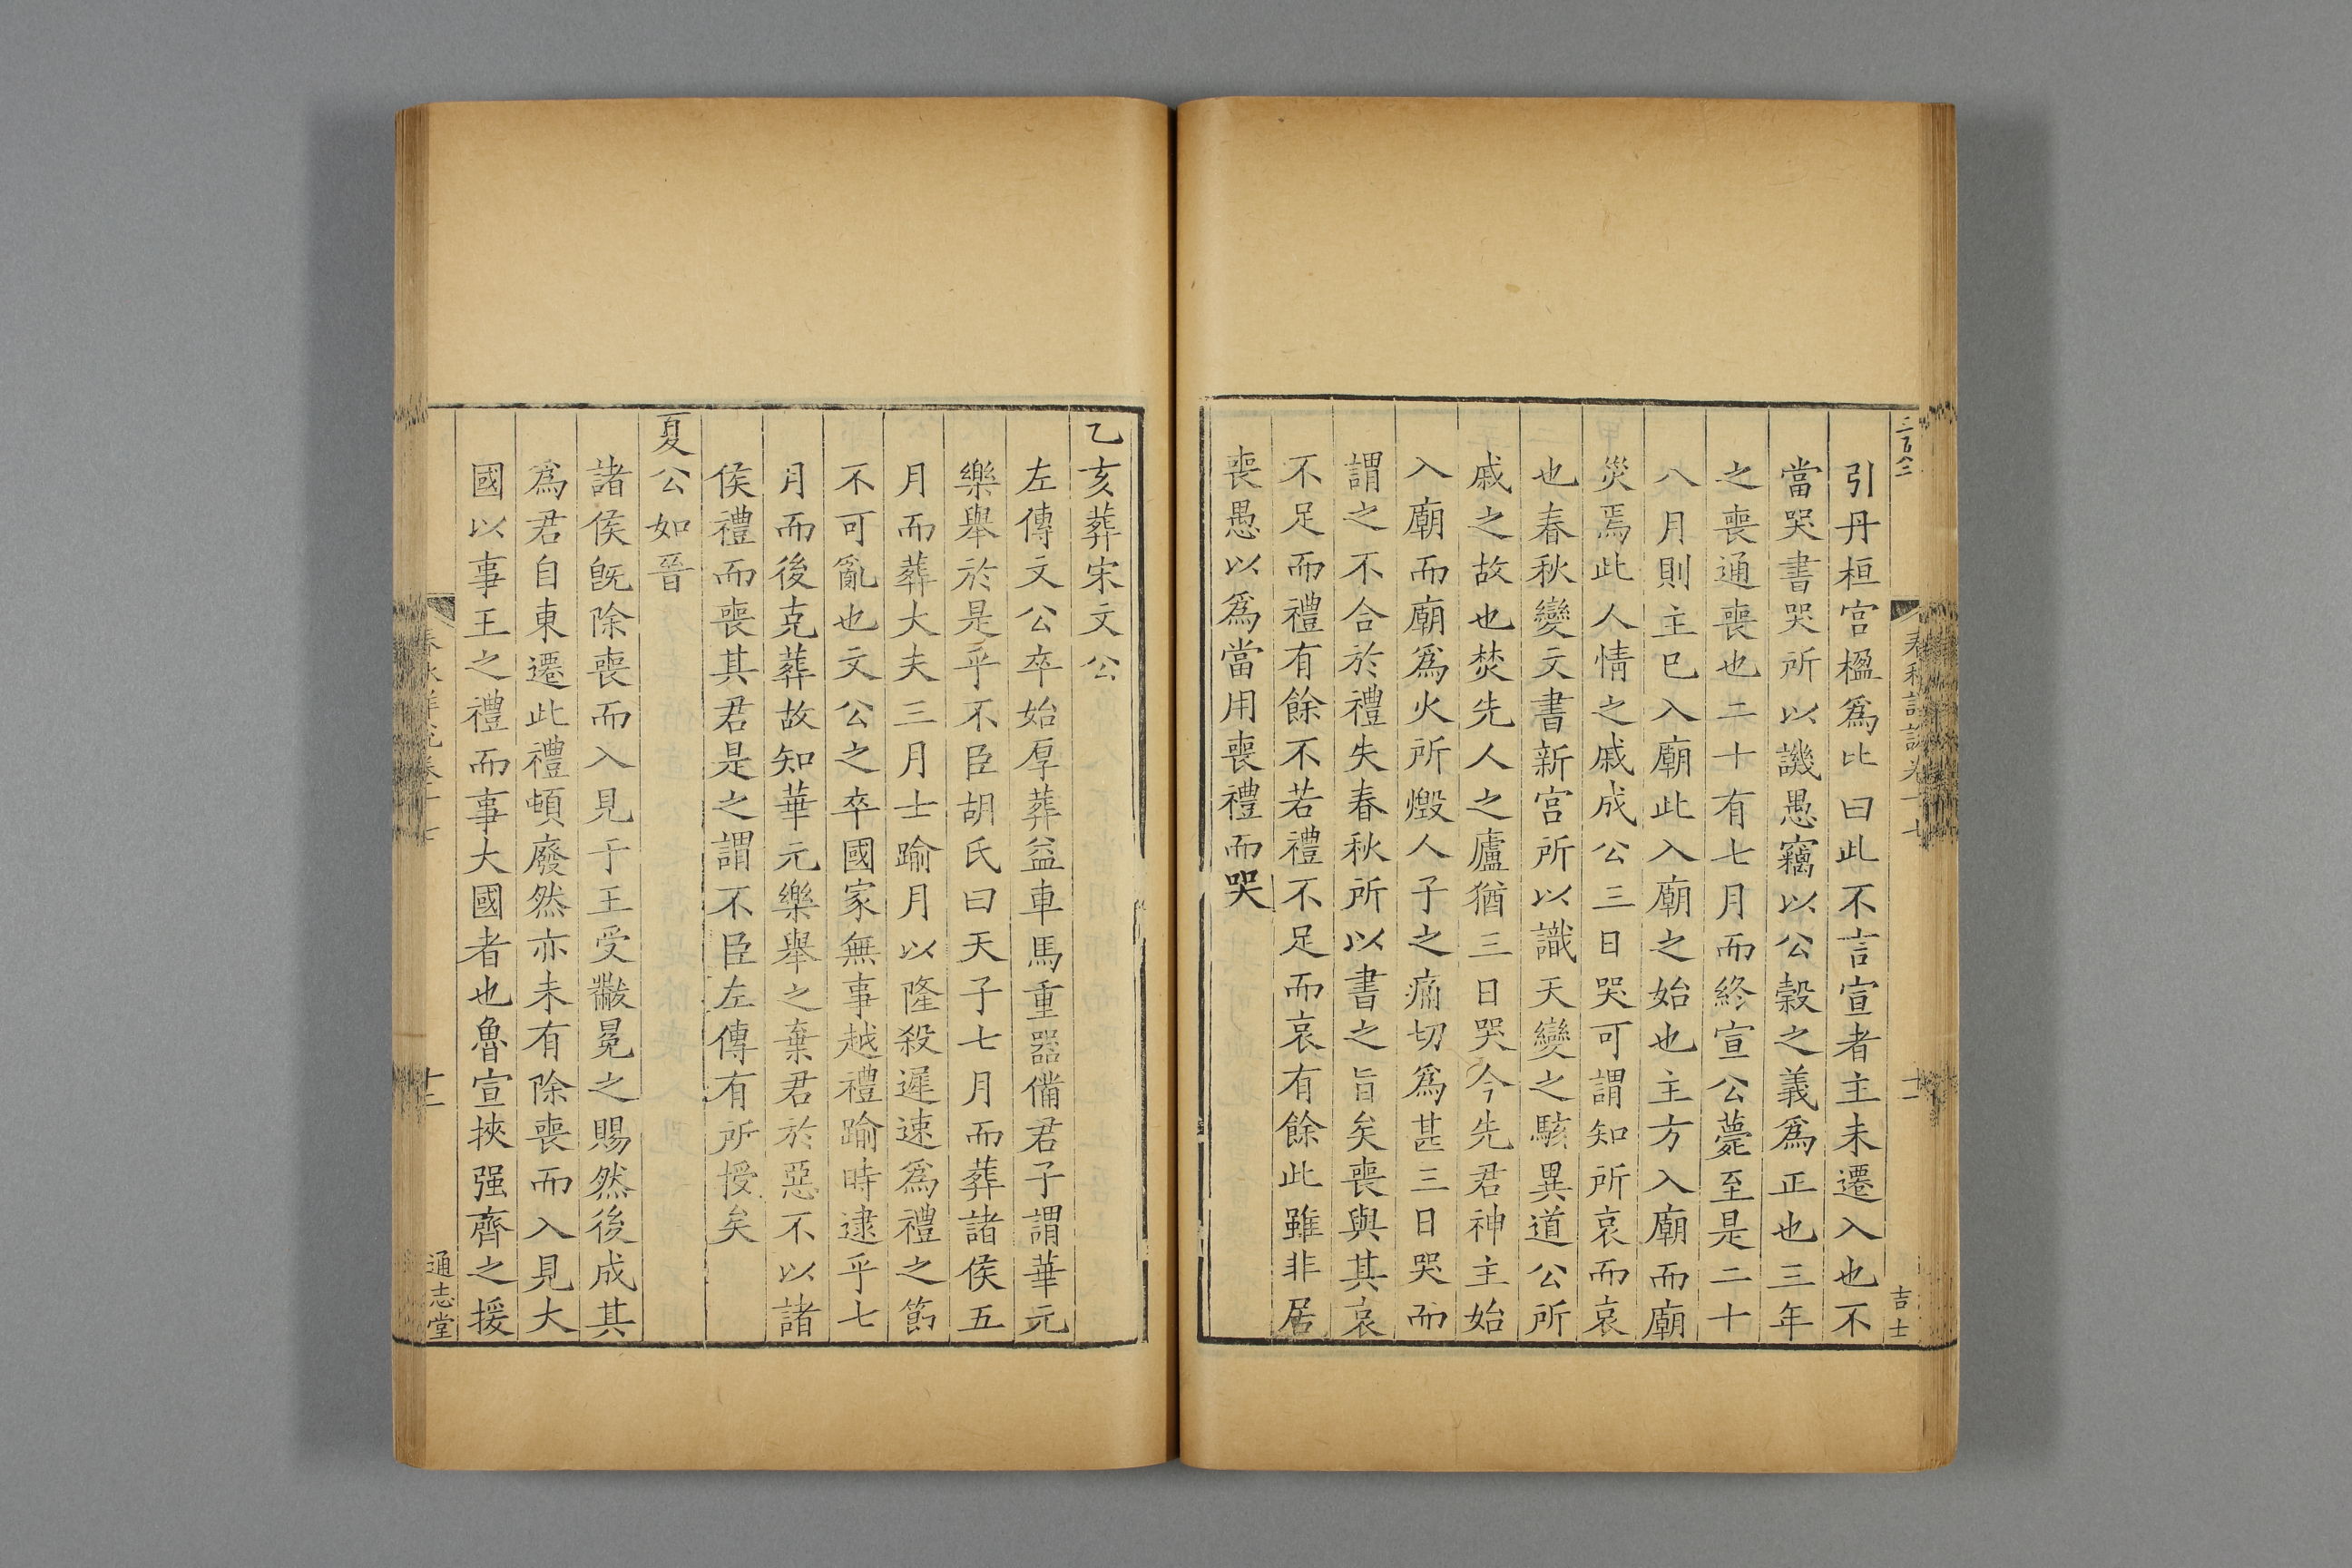 引丹桓宮楹爲比曰此不言宣者主未遷入也不
當哭書哭所以譏愚竊以公穀之義爲正也三年
之喪通喪也二十有七月而終宣公薨至是二十
八月則主巳入廟此入廟之始也主方入廟而廟
災焉此人情之戚成公三日哭可謂知所哀而哀
也春秋變文書新宮所以識天變之駭異道公所
戚之故也焚先人之廬猶三日哭今先君神主始
入廟而廟爲火所燬人子之痛切爲甚三日哭而
謂之不合於禮失春秋所以書之旨矣喪與其哀
不足而禮有餘不若禮不足而哀有餘此雖非居
喪愚以爲當用喪禮而哭
乙亥葬宋文公
左傳文公卒始厚葬益車馬重器備君子謂華元
樂舉於是乎不臣胡氏曰天子七月而葬諸侯五
月而葬大夫三月士踰月以隆殺遲速爲禮之節
不可亂也文公之卒國家無事越禮踰時逮乎七
月而後克葬故知華元樂舉之棄君於惡不以諸
侯禮而喪其君是之謂不臣左傳有所授矣
夏公如晉
諸侯旣除喪而入見于王受黻冕之賜然後成其
爲君自東遷此禮頓廢然亦未有除喪而入見大
國以事王之禮而事大國者也魯宣挾强齊之援
通志堂